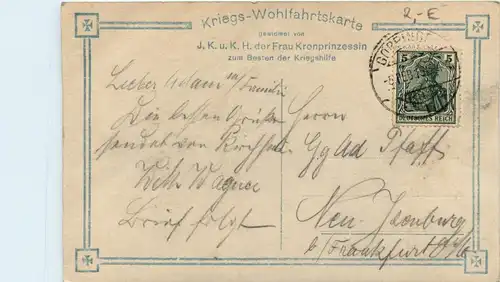 2,-E
Kriegs-Wohlfahrtskarte
gewidmet von
J. K. u. K. H. der Frau Kronprinzessin
zum Besten der Kriegshilfe
5 5
DEUTSCHES REICH
Lieber Adam u/Familie
Die besten Grüße
sendet von
Wilh Wagner
Brief folgt
Herrn
Adam Pfaff
Neu-Isenburg
b/Frankfurt a/M